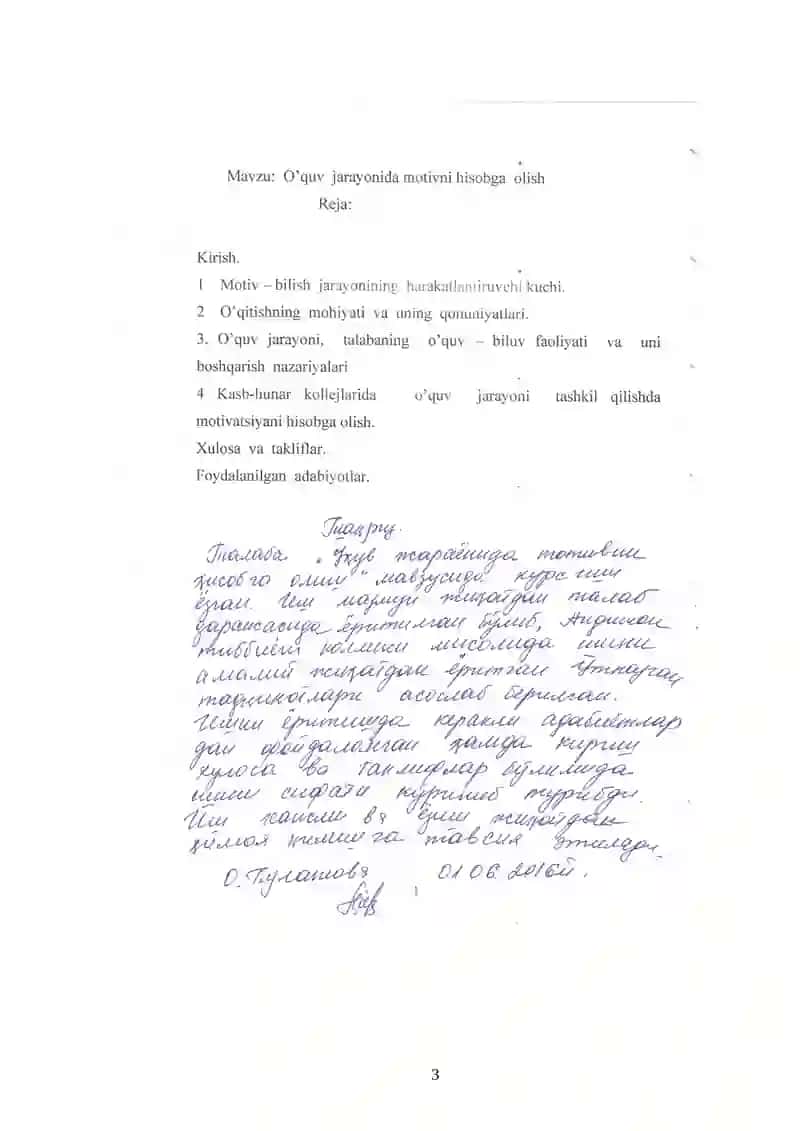 Mavzu: O’quv jarayonida motivni hisobga olish
Reja:
Kirish.
1 Motiv – bilish jarayonining harakatlantiruvchi kuchi.
2 O’qitishning mohiyati va uning qonuniyatlari.
3. O’quv jarayoni, talabaning o’quv – biluv faoliyati va uni
boshqarish nazariyalari
4 Kasb-hunar kollejlarida o’quv jarayoni tashkil qilishda
motivatsiyani hisobga olish.
Xulosa va takliflar.
Foydalanilgan adabiyotlar.
Тақриз.
Талаба „Ўқув жараёнида мотивни
ҳисобга олиш“ мавзусида курс иши
ёзган. Иш мазмун жиҳатдан талаб
даражасида ёритилган бўлиб, Андижон
тиббиёт коллежи мисолида ишни
амалий жиҳатдан ёритган Ўтказган
тадқиқотлари асослаб берилган.
Ишни ёритишда керакли адабиётлар
дан фойдаланган ҳамда кириш
хулоса ва таклифлар бўлимида
ишни сифати кўриниб турибди.
Иш ва ёзиш жиҳатдан
ҳимоя қилишга тавсия этилади.
О. Пулатова 01 06. 2016й.
3